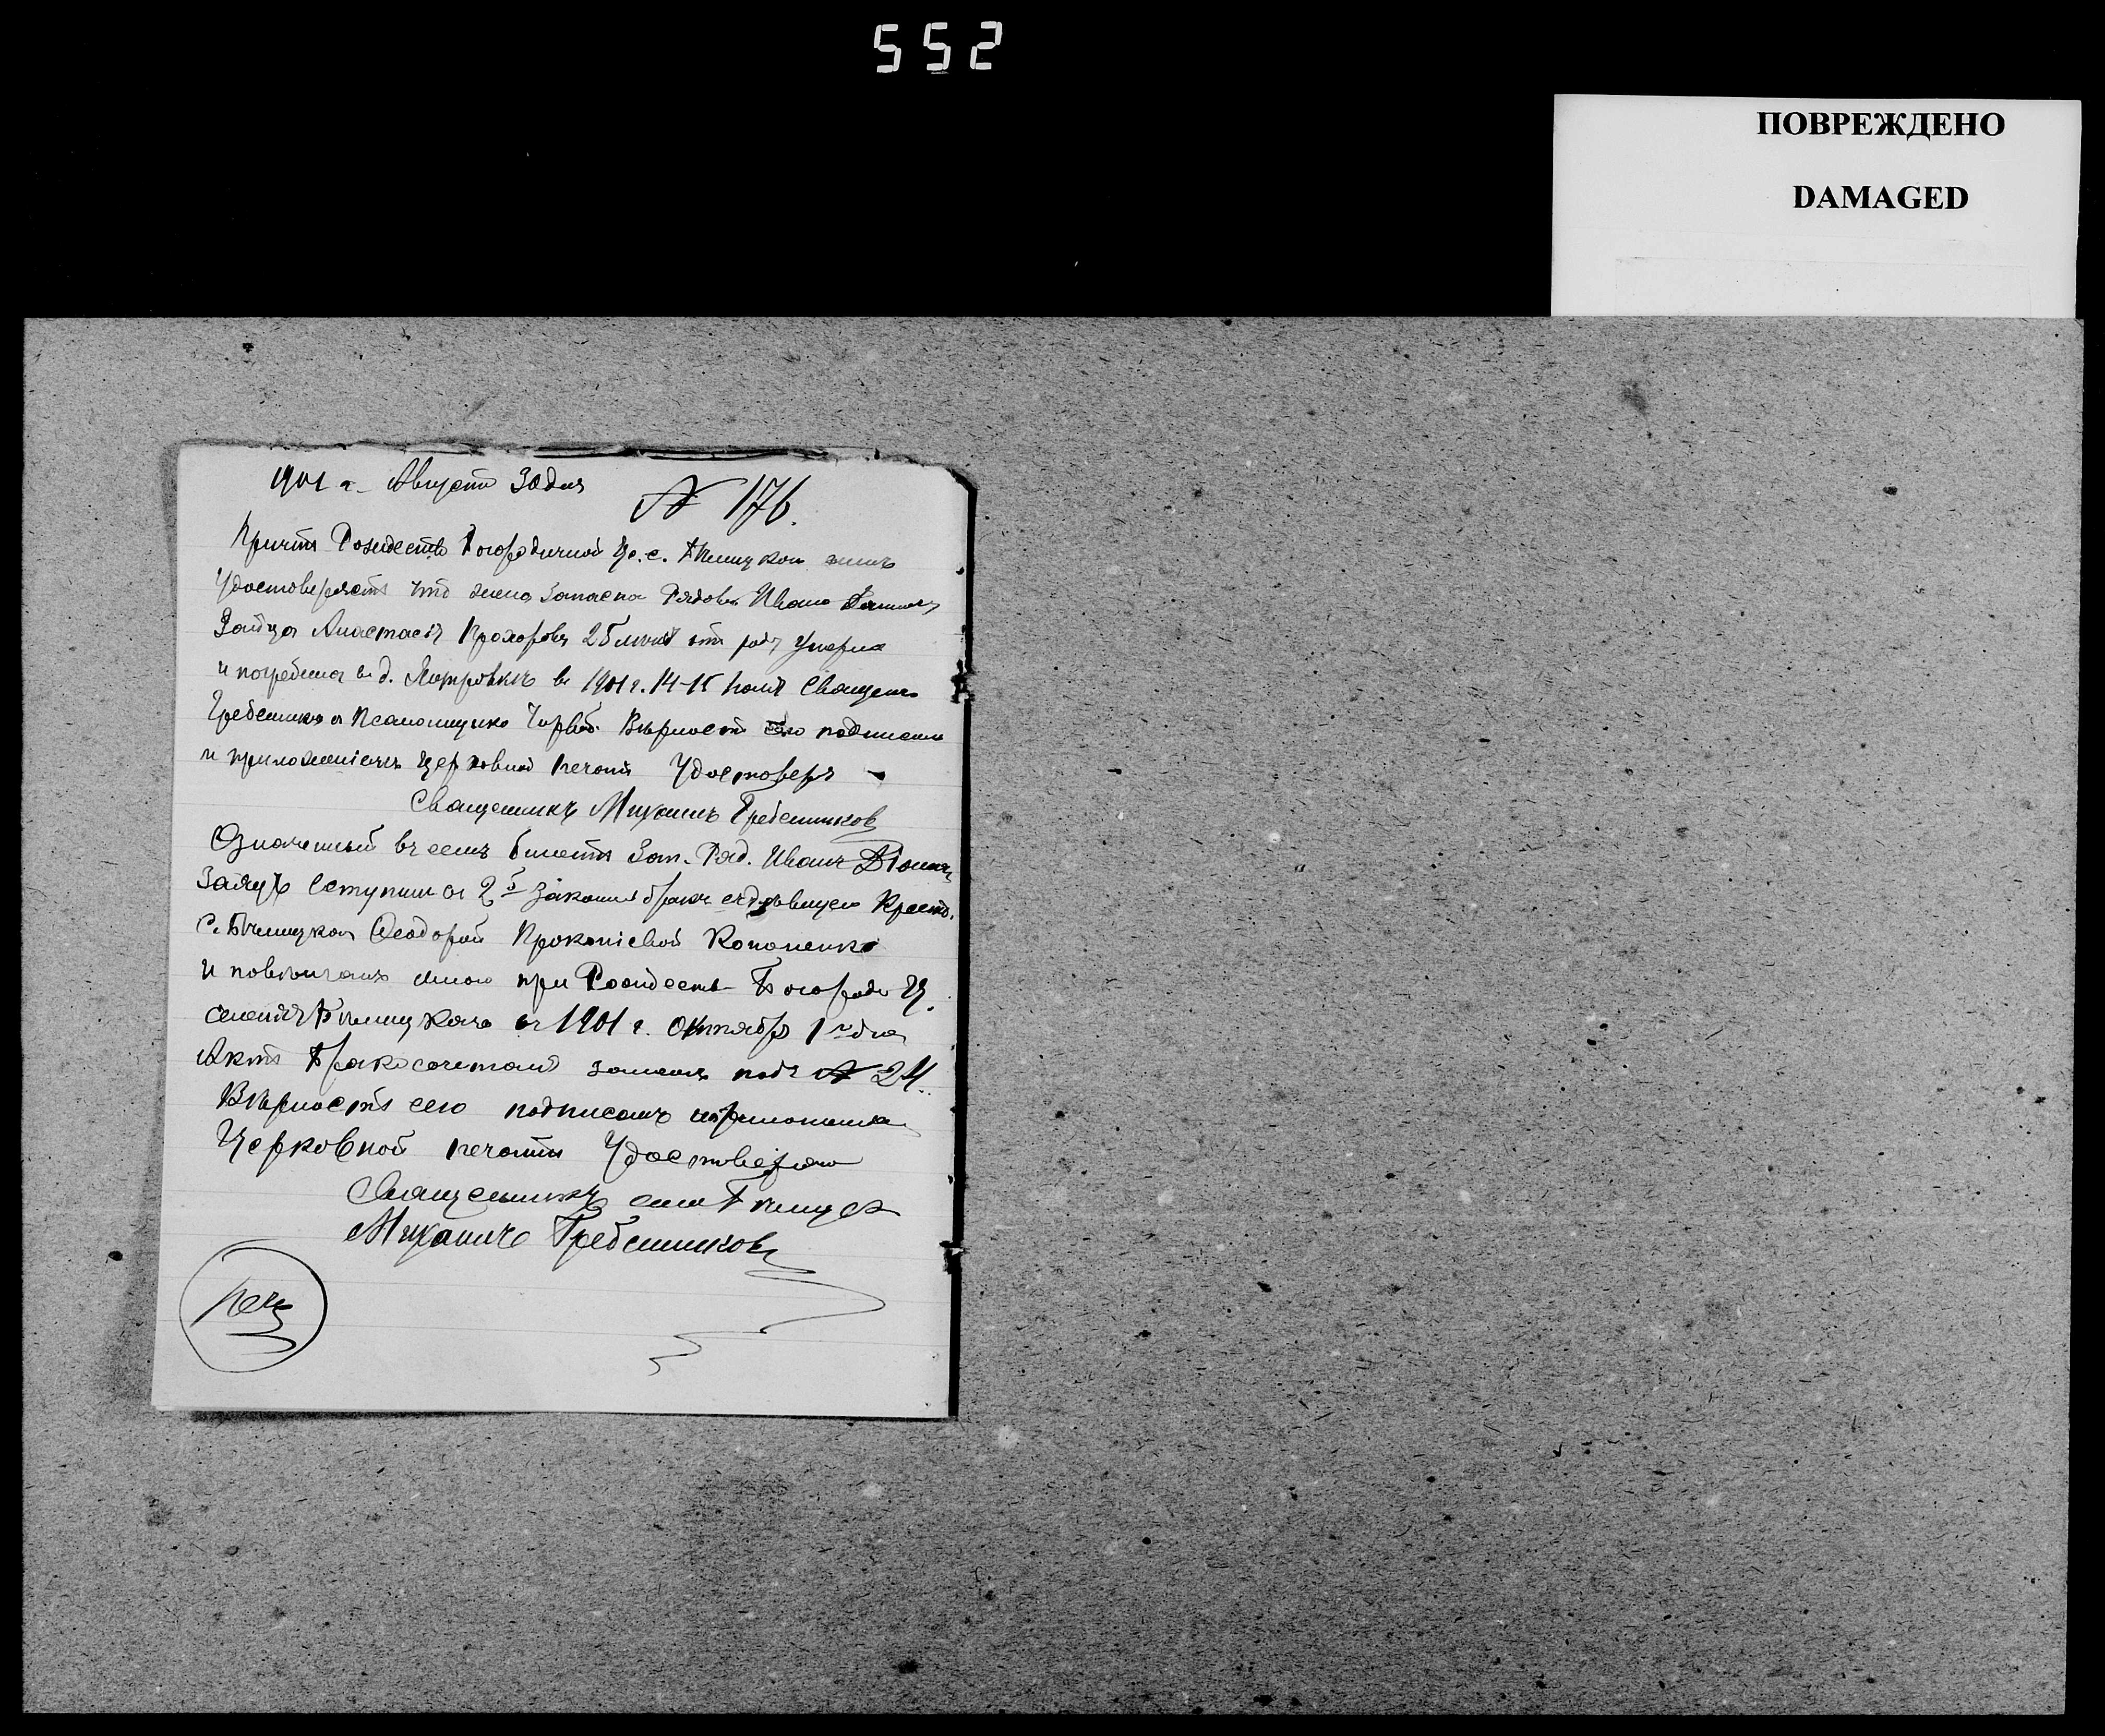 552
ПОВРЕЖДЕНО
DAMAGED
1901 г. Августа 30 дня
№ 176.
Причтъ Рождество Богородичной Ц. с. симъ
Удостоверяетъ что жена Запасна Рядов Ивана
Зайца Анастасія Прохорова 25 летъ отъ роду Умерла
и погребена в д. в 1901 г. 14-15 Священ
Гребенников Псаломщико Верность подписом
и приложеніемъ Церковной печати Удостоверя
Священникъ Михаилъ Гребенников
Означенный въ семъ билетѣ Зап. Ряд. Иванъ
Заяцъ Вступил въ 2й законый бракъ съ девицею Крест.
с. Феодорой Прокопіевой Кононенко
и повенчанъ мною при Рождеств Богород Ц.
въ 1901 г. Октября 1го дня
Актъ Бракосочетанія записан подъ № 24.
Верность сего подписомъ
Церковной печати Удостоверяю
Священникъ
Михаилъ Гребенников
печ